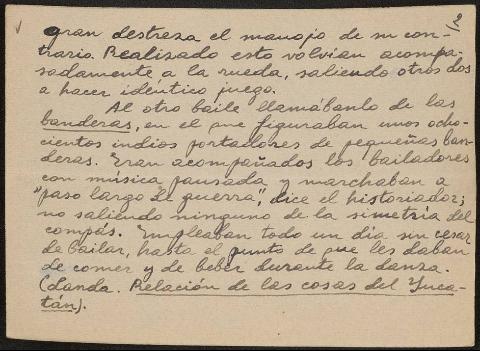 (2
gran destreza el manojo de su con-
trario. Realizado esto volvian acompa-
sadamente a la rueda, saliendo otros dos
a hacer idéntico juego.
Al otro baile llamábanlo de las
banderas, en el que figuraban unos ocho-
cientos indios portadores de pequeñas ban-
deras. Eran acompañados los bailadores
con música pausada y marchaban a
"paso largo de guerra", dice el historiador;
no saliendo ninguno de la simetria del
compás. Empleaban todo un dia sin cesar
de bailar, hasta el punto de que les daban
de comer y de beber durante la danza.
(Landa. Relación de las cosas del Yuca-
tán).